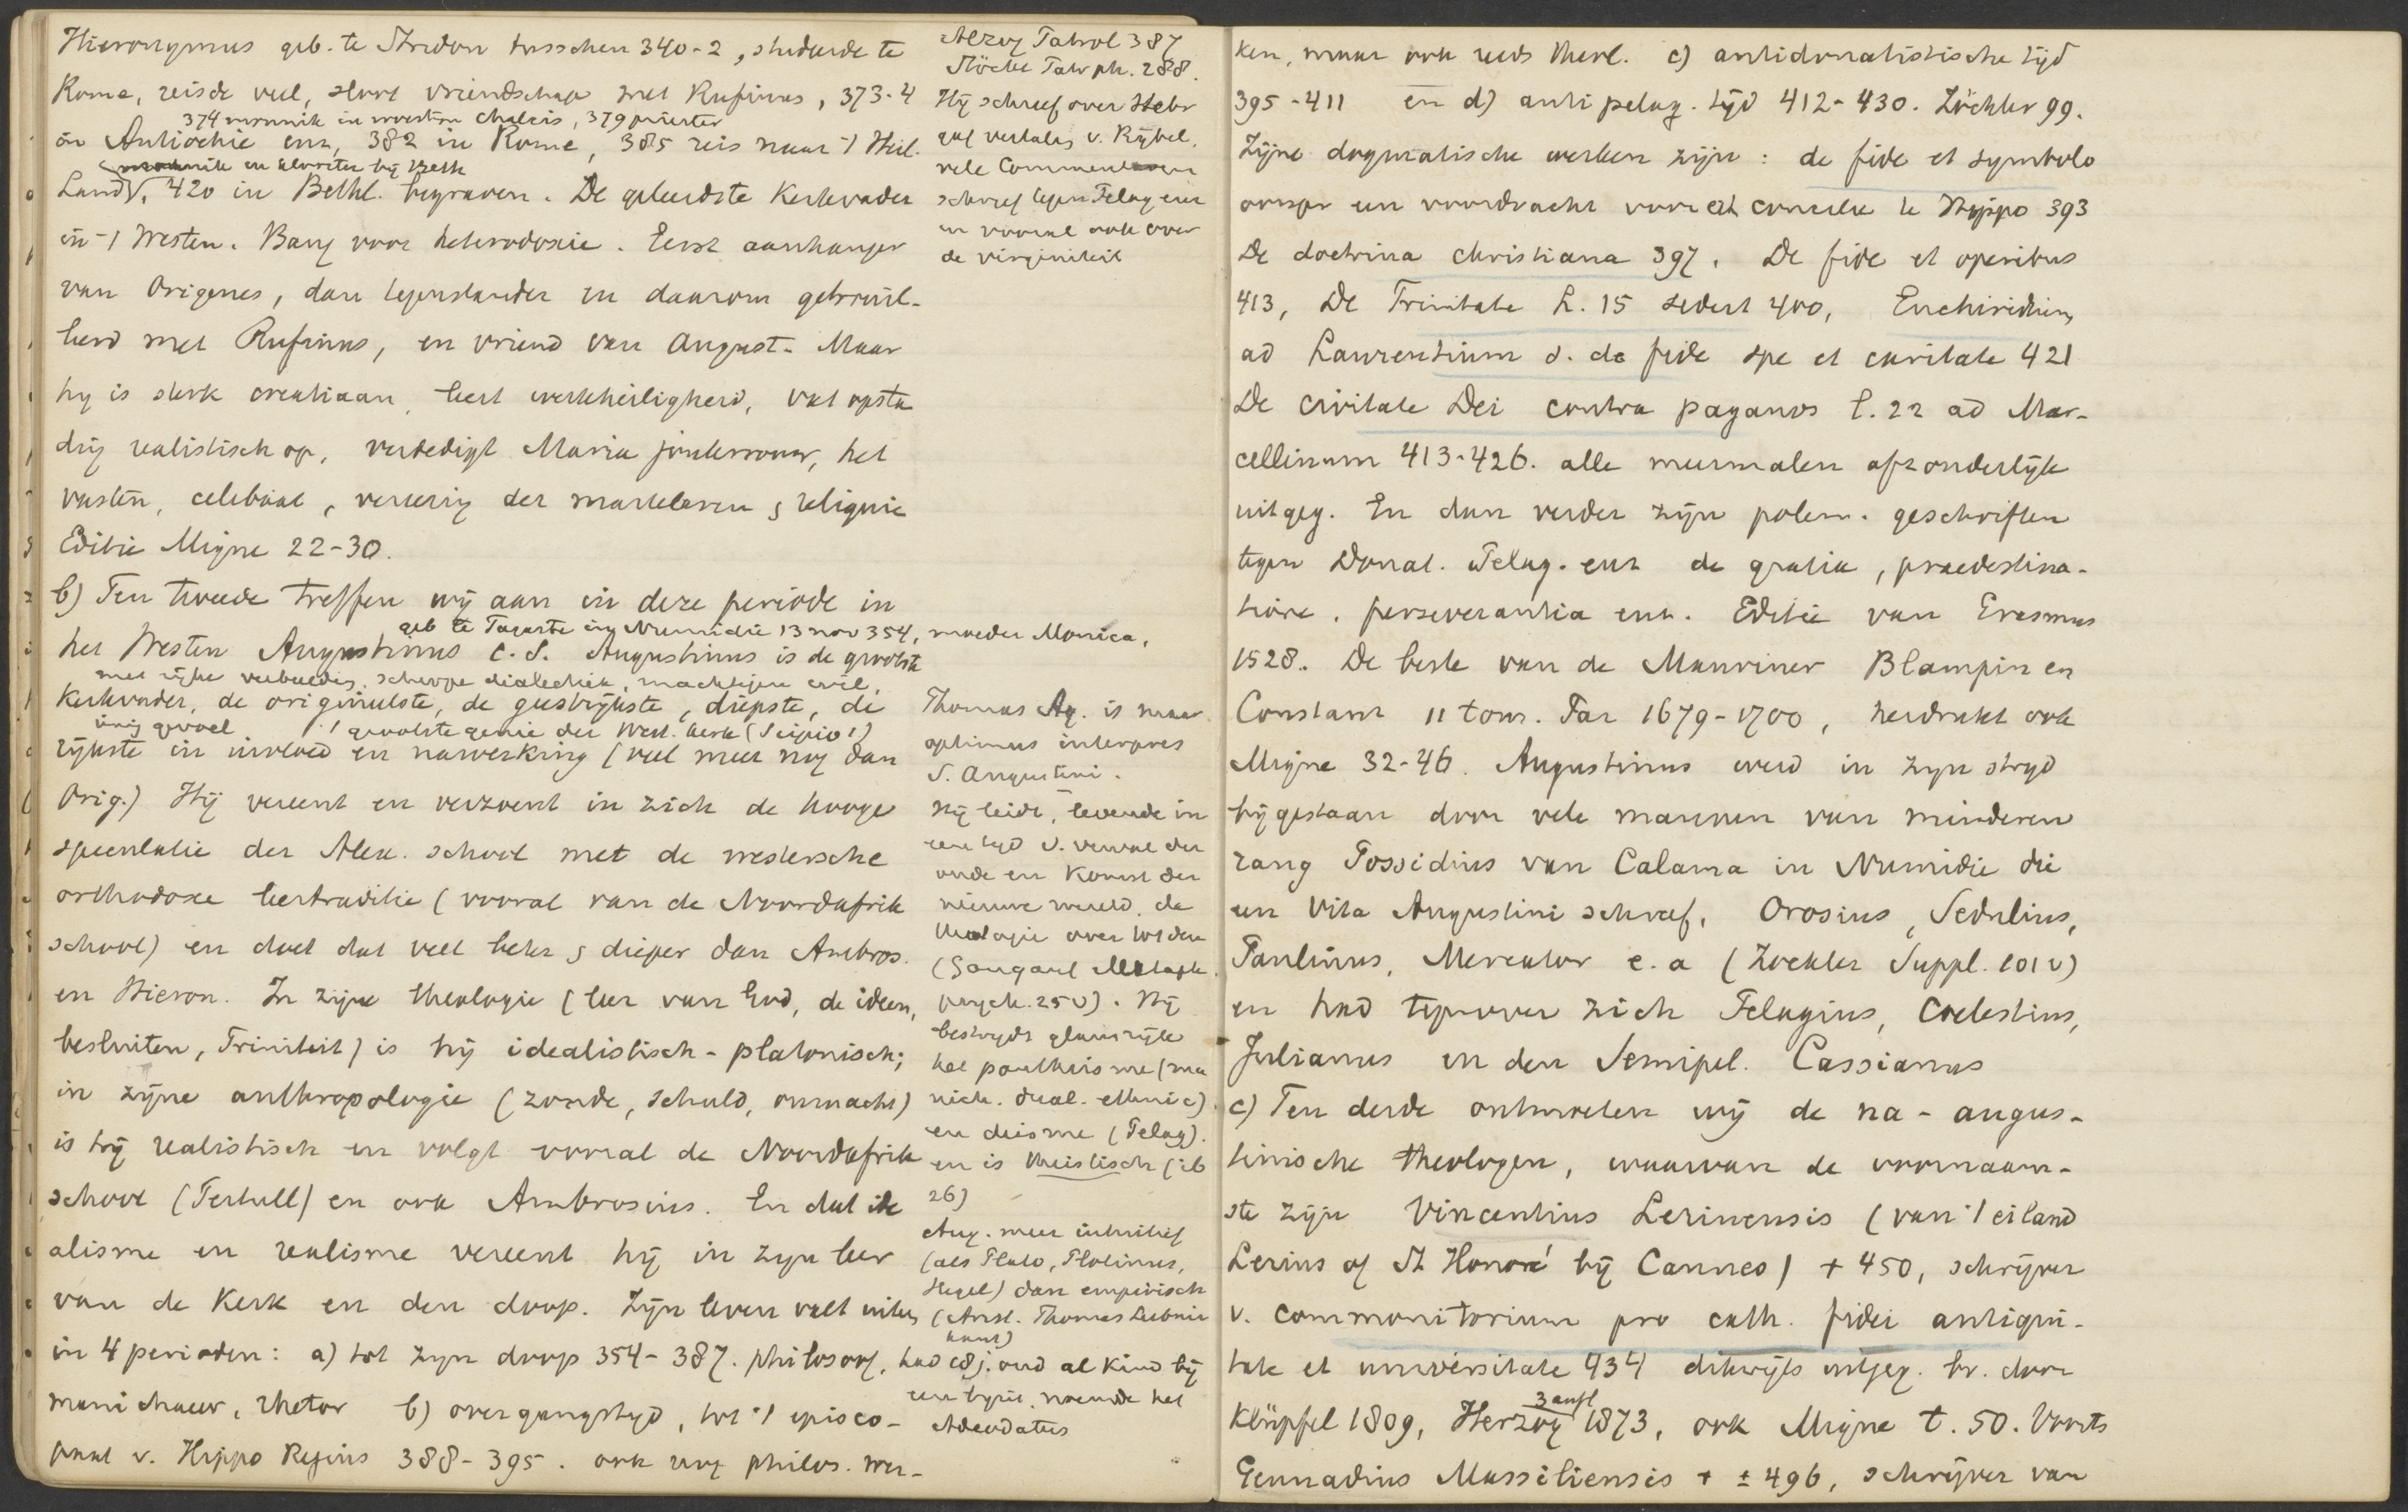 Hieronymus geb. te Stridon tusschen 340-2, studeerde te
Rome, reisde veel, sloot vriendschap met Rufinus, 373-4
374 monnik in woestijn Chalcis, 379 priester
in Antiochië enz, 382 in Rome, 385 reis naar 't Heil.
monnik en klooster bij Beth
Land, 420 in Bethl. begraven. De geleerdste Kerkvader
in 't Westen. Bang voor heterodoxie. Eerst aanhanger
van Origenes, dan tegenstander en daarom gebrouil-
leerd met Rufinus, en vriend van August. Maar
hij is sterk creatiaan, leert werkheiligheid, vat opstan
ding realistisch op, verdedigt Maria jonkvrouw, het
vasten, celibaat, vereering der martelaren & reliquie
Editie Migne 22-30.
Herzog Patrol 387
Stöckl Patr ph. 288.
Hij schreef over Hebr
gaf vertaling v. Bijbel,
vele Commentaren
schreef tegen Pelag enz
en vooral ook over
de virginiteit
b) Ten tweede treffen wij aan in deze periode in
geb te Tagaste in Numidië 13 nov 354, moeder Monica,
het Westen Augustinus c.s. Augustinus is de grootste
met rijke verbeelding, scherpe dialectiek, machtigen wil,
Kerkvader, de origineelste, de geestrijkste, diepste, de
innig gevoel 't grootste genie der West. kerk (Scipio!)
rijkste in invloed en nawerking (veel meer nog dan
Orig.) Hij vereent en verzoent in zich de hooge
speculatie der Alex. school met de westersche
orthodoxe leertraditie (vooral van de Noordafrik
school) en doet dat veel beter & dieper dan Ambros.
en Hieron. In zijne theologie (leer van God, de ideen,
besluiten, Triniteit) is hij idealistisch-platonisch;
in zijne anthropologie (zonde, schuld, onmacht)
is hij realistisch en volgt vooral de Noordafrik
school (Tertull) en ook Ambrosius. En dat ide
alisme en realisme vereent hij in zijn leer
van de Kerk en den doop. Zijn leven valt uiteen
in 4 perioden: a) tot zijn doop 354-387. philosoof,
manichaeer, rhetor b) overgangstijd, tot 't episco-
paat v. Hippo Regius 388-395. ook nog philos. wer-
Thomas Aq. is maar
optimus interpres
S. Augustini.
Hij leidt, levende in
een tijd v. verval der
oude en komst der
nieuwe wereld, de
theologie over tot den
(Gangauf Metaph.
psych. 25 v). Hij
bestrijdt glansrijk
het pantheisme (ma
nich. dual. ethnic)
en deisme (Pelag).
en is theistisch (ib
26)
Aug. meer intuitief
(als Plato, Plotinus,
Hegel) dan empirisch
(Arist. Thomas Leibniz
Kant)
had 18 j. oud al kind bij
een bijzit, noemde het
Adeodatus
ken, maar ook reeds theol. c) antidonatistische tijd
395-411 en d) antipelag. tijd 412-430. Zöckler 99.
Zijne dogmatische werken zijn: de fide et symbolo
oorspr een voordracht voor et concilie te Hippo 393
De doctrina christiana 397. De fide et operibus
413, De Trinitate L. 15 sedert 400, Enchiridion
ad Laurentium s. de fide spe et caritate 421
De civitate Dei contra paganos l. 22 ad Mar-
cellinum 413-426. alle meermalen afzonderlijk
uitgeg. En dan verder zijn polem. geschriften
tegen Donat. Pelag. enz de gratia, praedestina-
tione, perseverantia enz. Editie van Erasmus
1528. De beste van de Mauriner Blampin en
Constant 11 tom. Par 1679-1700, herdrukt ook
Migne 32-46. Augustinus werd in zijn strijd
bijgestaan door vele mannen van minderen
rang Possidius van Calama in Numidië die
een Vita Augustini schreef, Orosius, Sedulius,
Paulinus, Mercator e.a (Zoekler Suppl. 101 v)
en had tegenover zich Pelagius, Coelestius,
Julianus en den Semipel. Cassianus
c) Ten derde ontmoeten wij de na-augus-
tinische theologen, waarvan de voornaam-
ste zijn Vincentius Lerinensis (van 't eiland
Lerins of St Honoré bij Cannes) + 450, schrijver
v. commonitorium pro cath. fidei antiqui-
tate et universitate 434 dikwijls uitgeg. br. door
3 aufl
Klüpfel 1809, Herzog 1873, ook Migne t. 50. Voorts
Gennadius Massiliensis + ± 496, schrijver van